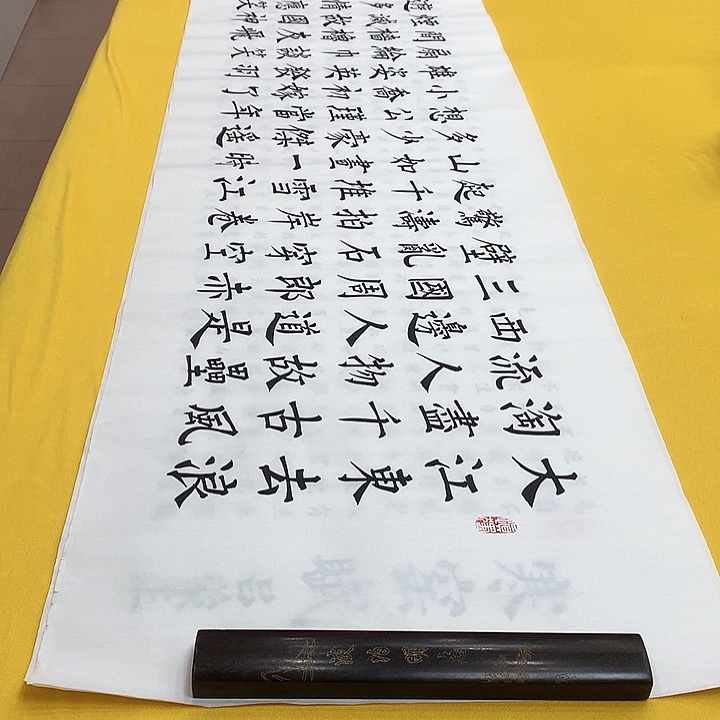 大江東去浪
淘盡千古風
流人物故壘
西邊人道是
三國周郎赤
壁亂石穿空
驚濤拍岸卷
起千堆雪江
山如畫一時
多少豪傑遙
想公瑾當年
小喬初嫁了
雄姿英發羽
扇綸巾談笑
間檣櫓灰飛
煙滅故國神
遊多情應笑